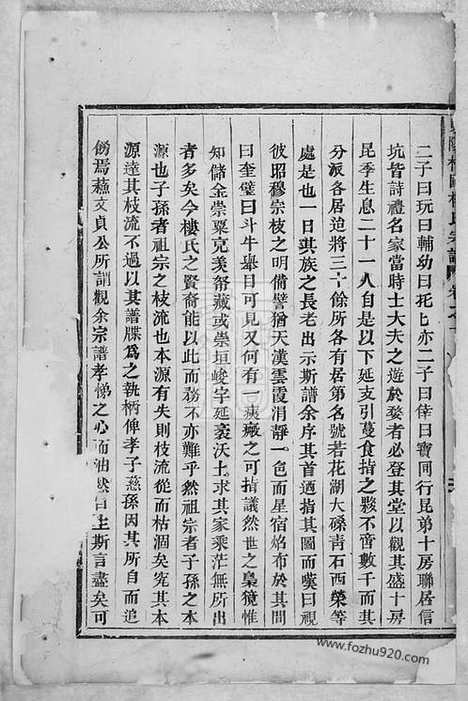 二子曰玩曰輔幼曰托七亦二子曰倖曰寶同行昆弟十房聯居信
坑皆詩禮名家當時士大夫之遊於婺者必登其堂以觀其盛十房
昆季生息二十一人自是以延支引蔓食指之夥不啻數千而其
分派各居迨將三十餘所各有居第名號若花湖大磜靑石西榮等
處是也一日其族之長老出示斯譜余序其首遒指其圖而嘆曰視
彼昭穆宗枝之明備譬猶天漢雲霞消靜一色而星宿焰布於其間
曰奎璧曰斗牛舉目可見又何有一瘢之可指議然世之梟獍惟
知儲金崇粟克美帑藏或崇垣峻宇延袤沃土求其家乘茫無所出
者多矣今樓氏之賢裔能以此而務不亦難乎然祖宗者子孫之本
源也子孫者祖宗之枝流也本源有失則枝流從而枯涸矣究其本
源達其枝流不過以其譜牒爲之執柄俾孝子慈孫因其所自而追
倣焉蘓文貞公所謂觀余宗譜孝悌之心而油然自生斯言盡矣可
氏宗譜 卷之
www.fozhu920.com